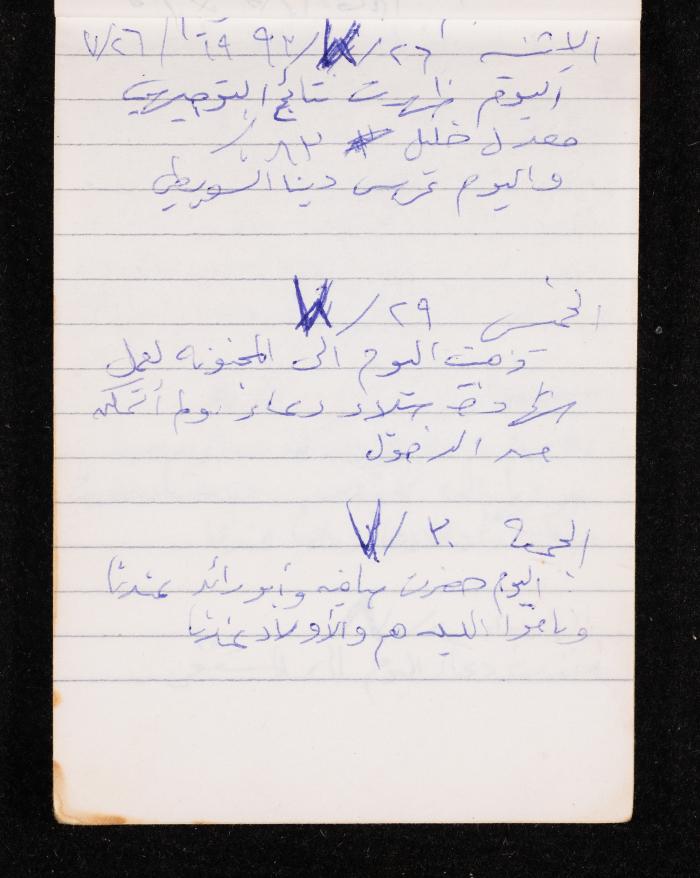 الاثنين ٢٦/٧/١٩٩٣ ٧/٢٦
اليوم ظهرت نتائج التوجيهي
معدل خليل ٨٣٪
واليوم عرس دينا السويطي
الخميس ٢٩/٧
ذهبت اليوم الى المخنونه لعمل
دعاء ولم أتمكن
من الدخول
الجمعة ٣٠/٧
اليوم حضرت صافيه وأبو رائد عندنا
وناموا الليله هم والأولاد عندنا